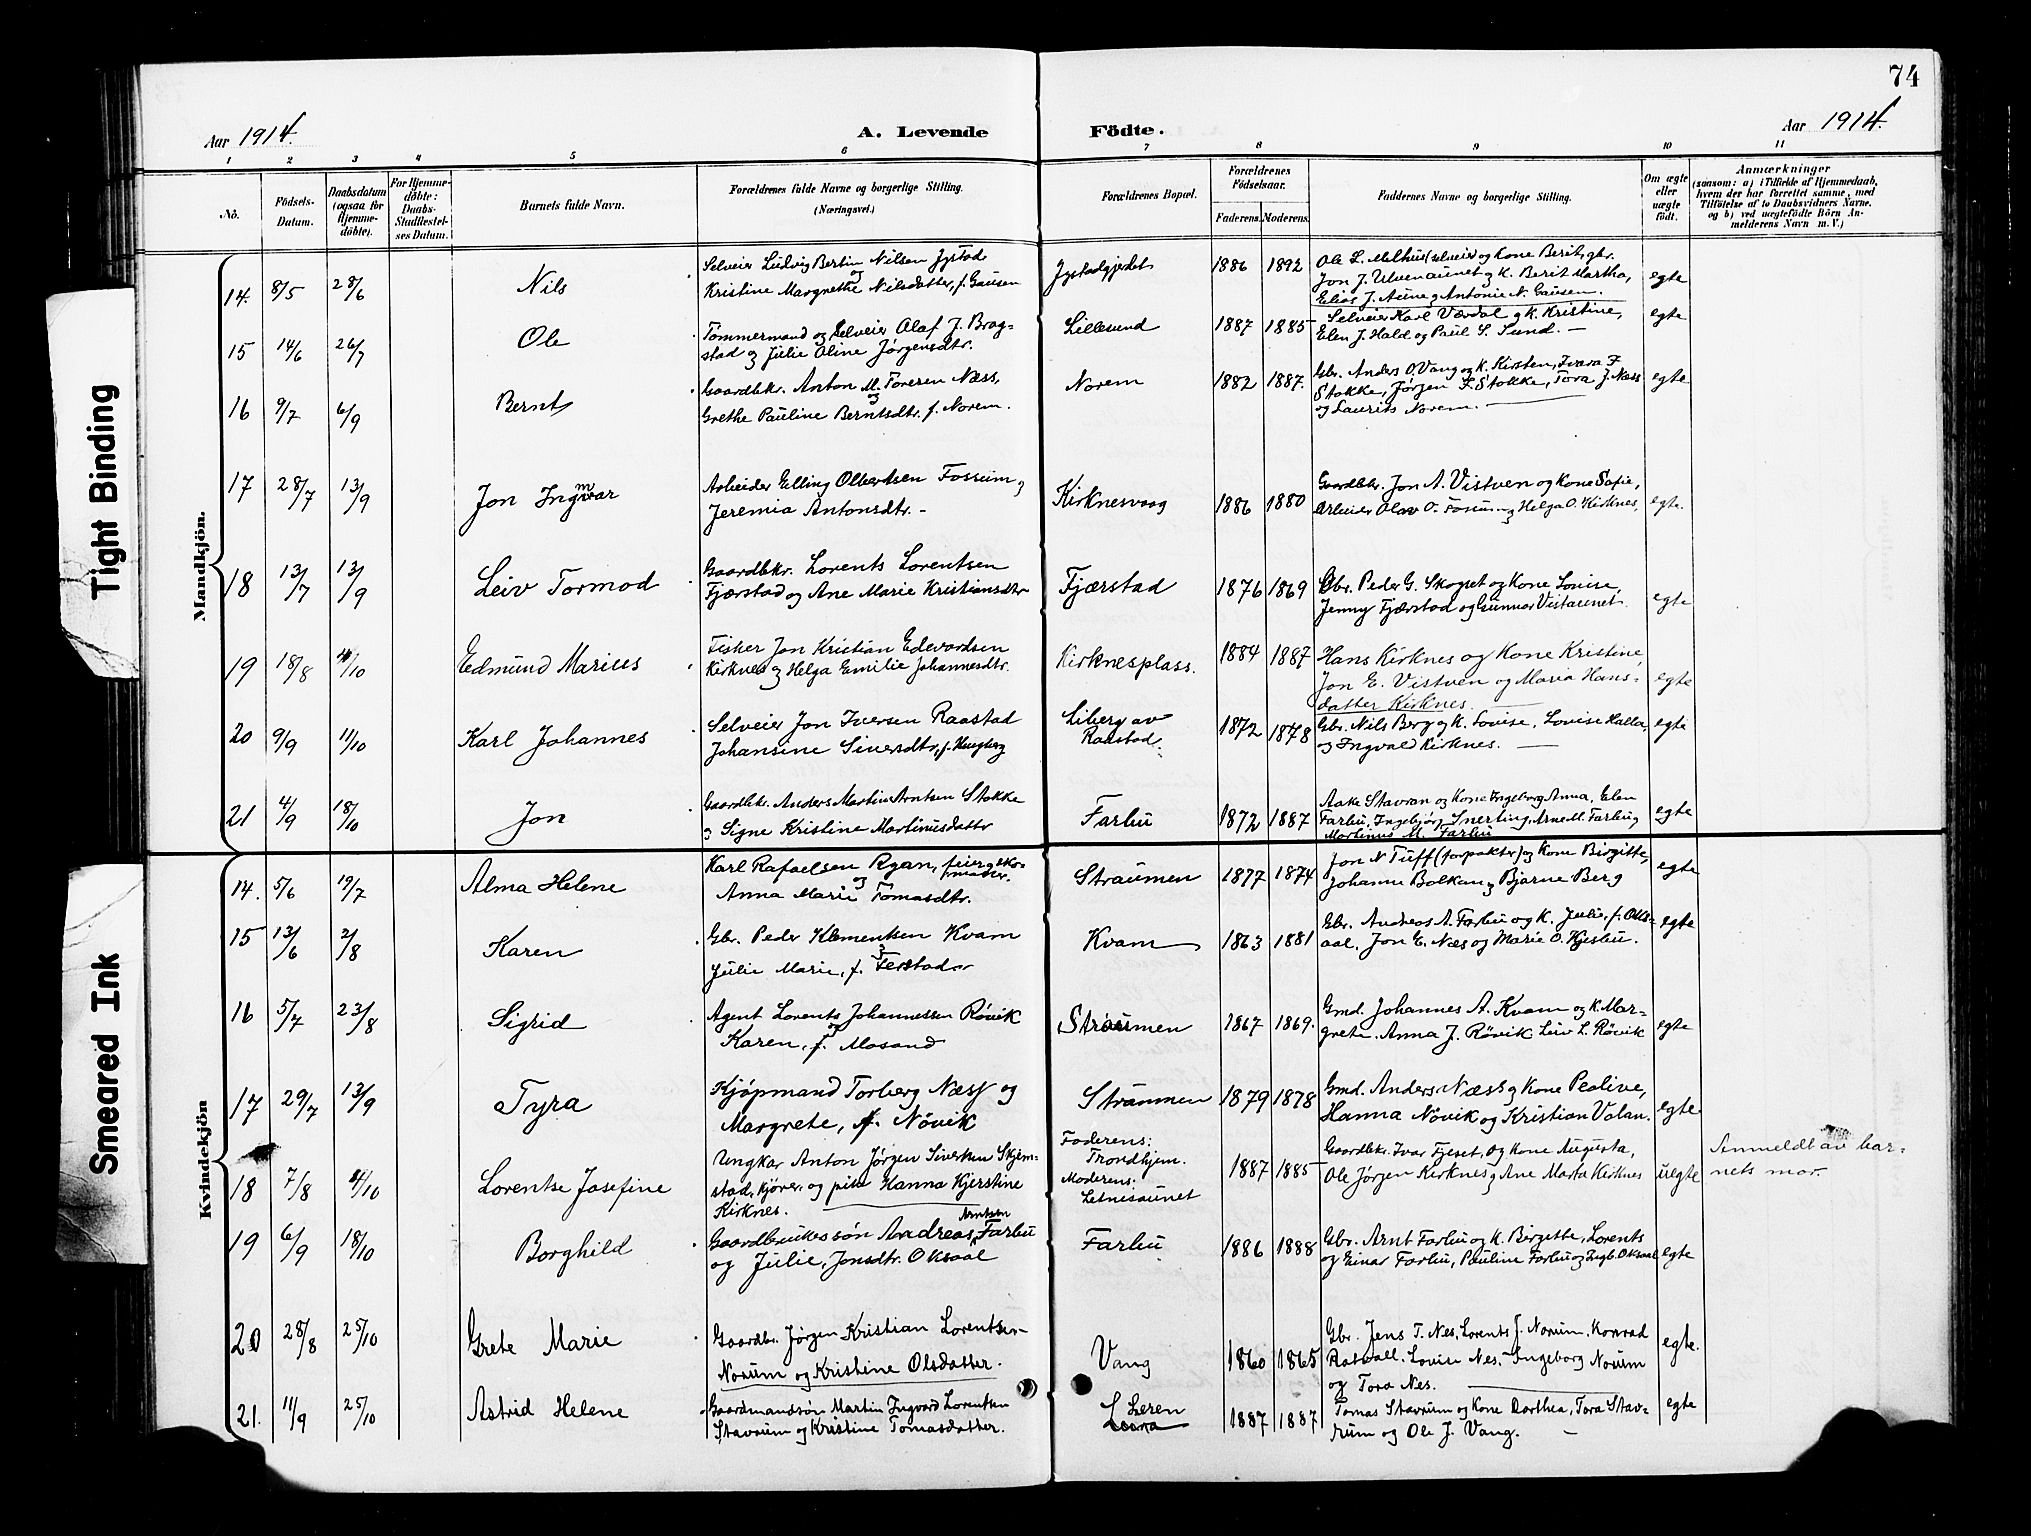 74
Aar 1914.
A. Levende Födte.
Aar 1914.
1 2 3 4 5 6 7 8 9 10 11
No.
Födsels-
Datum.
Daabsdatum
(ogsaa for
Hjemme-
döbte).
For Hjemme-
döbte:
Daabs-
Stadfæstel-
ses Datum.
Barnets fulde Navn.
Forældrenes fulde Navne og borgerlige Stilling.
(Næringsvei.)
Forældrenes Bopæl.
Forældrenes
Födselsaar.
Faderens. Moderens.
Faddernes Navne og borgerlige Stilling.
Om ægte
eller
uægte
födt.
Anmærkninger
(saasom: a) i Tilfælde af Hjemmedaab,
hvem der har forrettet samme, med
Tilföielse af to Daabsvidners Navne,
og b) ved uægtefödte Börn An-
melderens Navn m. V.)
Mandkjön.
14. 8/5 28/6 Nils
Selveier Ludvig Bertin Nilsen Jystad
og
Kristine Margrethe Nilsdatter, f. Gausen
Jystadgjerdet 1886 1892
Ole L. Melhus (selveier) og Kone Berit, gbr.
Jon J. Ulvenaunet og K. Berit Martha,
Elias J. Aune og Antonie N. Gausen.
egte
15 14/6 26/7 Ole
Tømmermand og Selveier Olaf J. Brag-
stad og Julie Oline Jørgensdtr.
Lillesund 1887 1885
Selveier Karl Værdal og K. Kristine,
Elen J. Hald og Paul S. Sund. —
egte
16 9/7 6/9 Bernt
Gaardbkr. Anton M. Toresen Næss,
og
Grethe Pauline Berntsdtr. f. Norem.
Norem 1882 1887.
Gbr. Anders O. Vang og K. Kirsten, Ivara F.
Stokke, Jørgen F. Stokke, Tora J. Næss
og Laurits Norem.
egte
17 28/7 13/9 Jon Ingmar
Arbeider Elling Olbertsen Fossum og
Jeremia Antonsdtr. -
Kirknesvaag 1886 1880
Gaardbkr. Jon A. Vistven og Kone Sofie,
Arbeider Olav O. Fossum og Helga O. Kirknes,
egte.
18 13/7 13/9 Leiv Tormod
Gaardbkr. Lorents Lorentsen
Fjærstad og Ane Marie Kristiansdtr
Fjærstad 1876 1869
Gbr. Peder G. Skogset og Kone Lovise,
Jenny Fjærstad og Gunnar Vistaunet.
egte
19 18/8 4/10 Edmund Marius
Fisker Jon Kristian Edevardsen
Kirknes og Helga Emilie Johannesdtr.
Kirknesplass. 1884 1887
Hans Kirknes og Kone Kristine,
Jon E. Vistven og Maria Hans-
datter Kirknes.
egte
20 9/9 11/10 Karl Johannes
Selveier Jon Iversen Raastad
Johansine Siversdtr, f. Haugberg
Liberg av
Raastad. 1872 1878
Gbr. Nils Berg og K. Lovise, Lovise Halla,
og Ingvald Kirknes. —
egte
21 4/9 18/10 Jon
Gaardbkr. Anders Martin Arntsen Stokke
og Signe Kristine Martinusdatter
Farbu 1872 1887
Aake Stavran og Kone Ingeborg Anna, Elen
Farbu, Ingebjørg Snerting, Arne M. Farbu og
Martinus M. Farbu
egte
Kvindekjön
14. 5/6 19/7 Alma Helene
Karl Rafaelsen Ryan, feier og sko-
og maker.
Anna Marie Tomasdtr.
Straumen 1877 1874
Jon N. Tuff (forpakter) og Kone Birgitte,
Johanne Bolkan og Bjarne Berg
egte
15 13/6 2/8 Karen
Gbr. Peder Klementsen Kvam
og
Julie Marie, f. Ferstad
Kvam 1863 1881
Gbr. Andreas A. Farbu og K. Julie, f. Oks-
aal. Jon E. Næs og Marie O. Hjesbu.
egte
16 5/7 23/8 Sigrid
Agent Lorents Johannessen Røvik
og
Karen, f. Mosand
Straumen 1867 1869.
Gmd. Johannes A. Kvam og K. Mar-
grete. Anna J. Røvik Leiv L. Røvik
egte
17 29/7 13/9 Tyra
Kjøpmand Torberg Næss og
Margrete, f. Nøvik
Straumen 1879 1878
Gmd. Anders Næss og Kone Pealive,
Hanna Nøvik og Kristian Valan.
egte
18 7/8 4/10 Lorentse Josefine
Ungkar Anton Jørgen Sivertsen Skjem-
stad, kjører, og pike Hanna Kjerstine
Kirknes.
Faderens:
Trondhjem.
Moderens:
Letnisaunet
1887 1885
Gaardbkr. Ivar Fjeset, og Kone Augusta,
Ole Jørgen Kirknes og Ane Marta Kirknes
uegte
Anmeldt av bar-
nets mor.
19 6/9 18/10 Borghild
Arntsen
Gaardbrukessøn Andreas Farbu
og Julie, Jonsdtr. Oksaal
Farbu 1886 1888
Gbr. Arnt Farbu og K. Birgitte, Lorents
og Einar Farbu, Pauline Farbu og Ingb. Oksaal
egte
20 28/8 25/10 Grete Marie
Gaardbr. Jørgen Kristian Lorentsen
Norum og Kristine Olsdatter.
Vang 1860 1865
Gbr. Jens T. Nes, Lorents J. Norum, Konrad
Ratvall. Lovise Nes, Ingeborg Norum
og Tora Nes.
egte.
21. 11/9 25/10 Astrid Helene
Gaardmandsøn Martin Ingvard Lorentsen
Stavrum og Kristine Tomasdatter.
Leren 1887 1887
Tomas Stavrum og Kone Dorthea, Tora Stav-
rum og Ole J. Vang. —
egte
Tight Binding
Smeared Ink